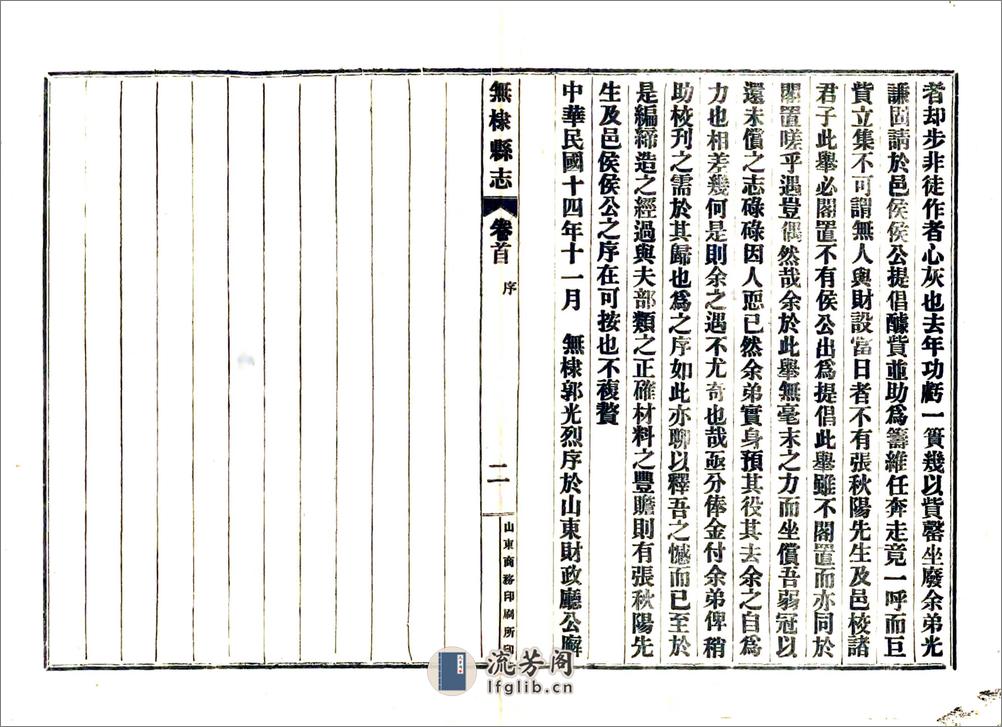 者却步非徒作者心灰也去年功虧一簣幾以貲罄坐廢余弟光
謙固請於邑侯侯公提倡醵貲並助為籌維任奔走竟一呼而巨
貲立集不可謂無人與財設當日者不有張秋陽先生及邑校諸
君子此舉必閣置不有侯公出為提倡此舉雖不閣置而亦同於
閣置嗟乎遇豈偶然哉余於此舉無毫末之力而坐償吾弱冠以
還未償之志碌碌因人恧已然余弟實身預其役其去余之自為
力也相差幾何是則余之遇不尤奇也哉亟分俸金付余弟俾稍
助校刊之需於其歸也為之序如此亦聊以釋吾之憾而已至於
是編締造之經過與夫部類之正確材料之豐贍則有張秋陽先
生及邑侯侯公之序在可按也不複贅
中華民國十四年十一月 無棣郭光烈序於山東財政廳公廨
無棣縣志 卷首 序 二 山東商務印刷所印
流芳阁
lfglib.cn